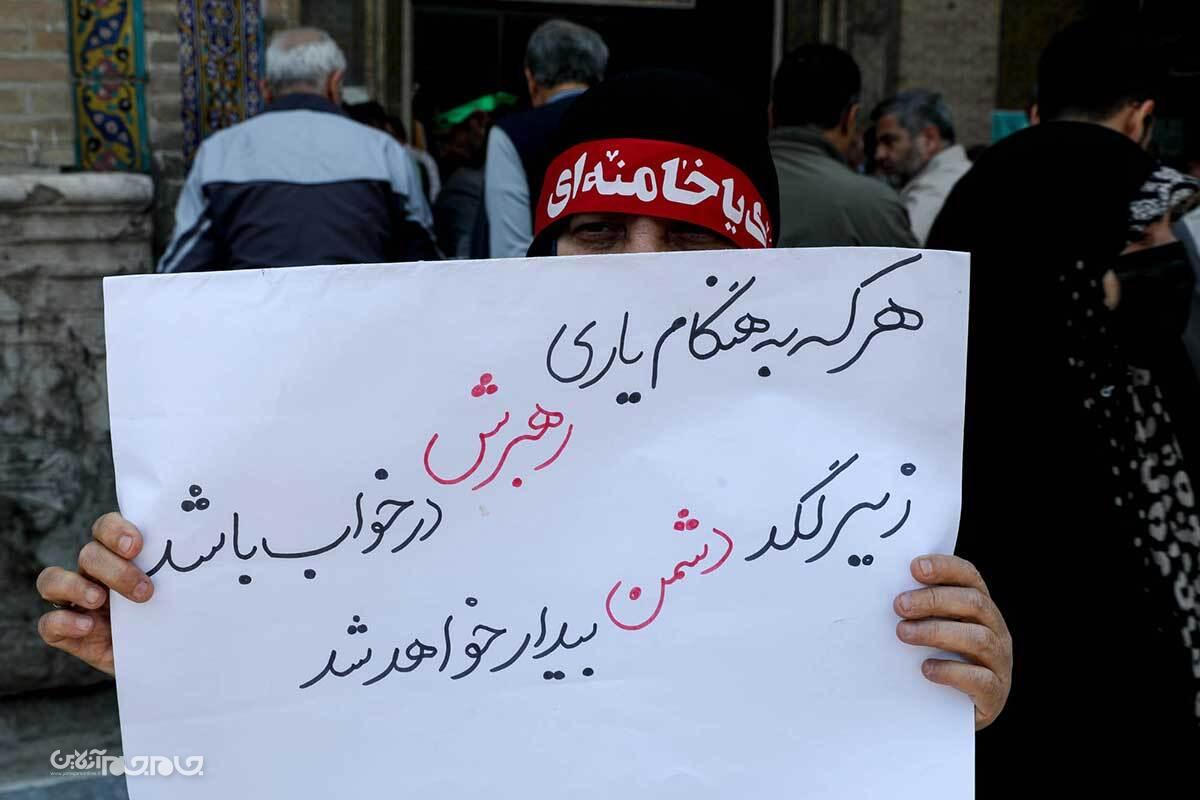 ک یا خامنه‌ای
هر که به هنگام یاری
رهبرش
در خواب باشد
زیر لگد دشمن
بیدار خواهد شد
جام‌جم آنلاین